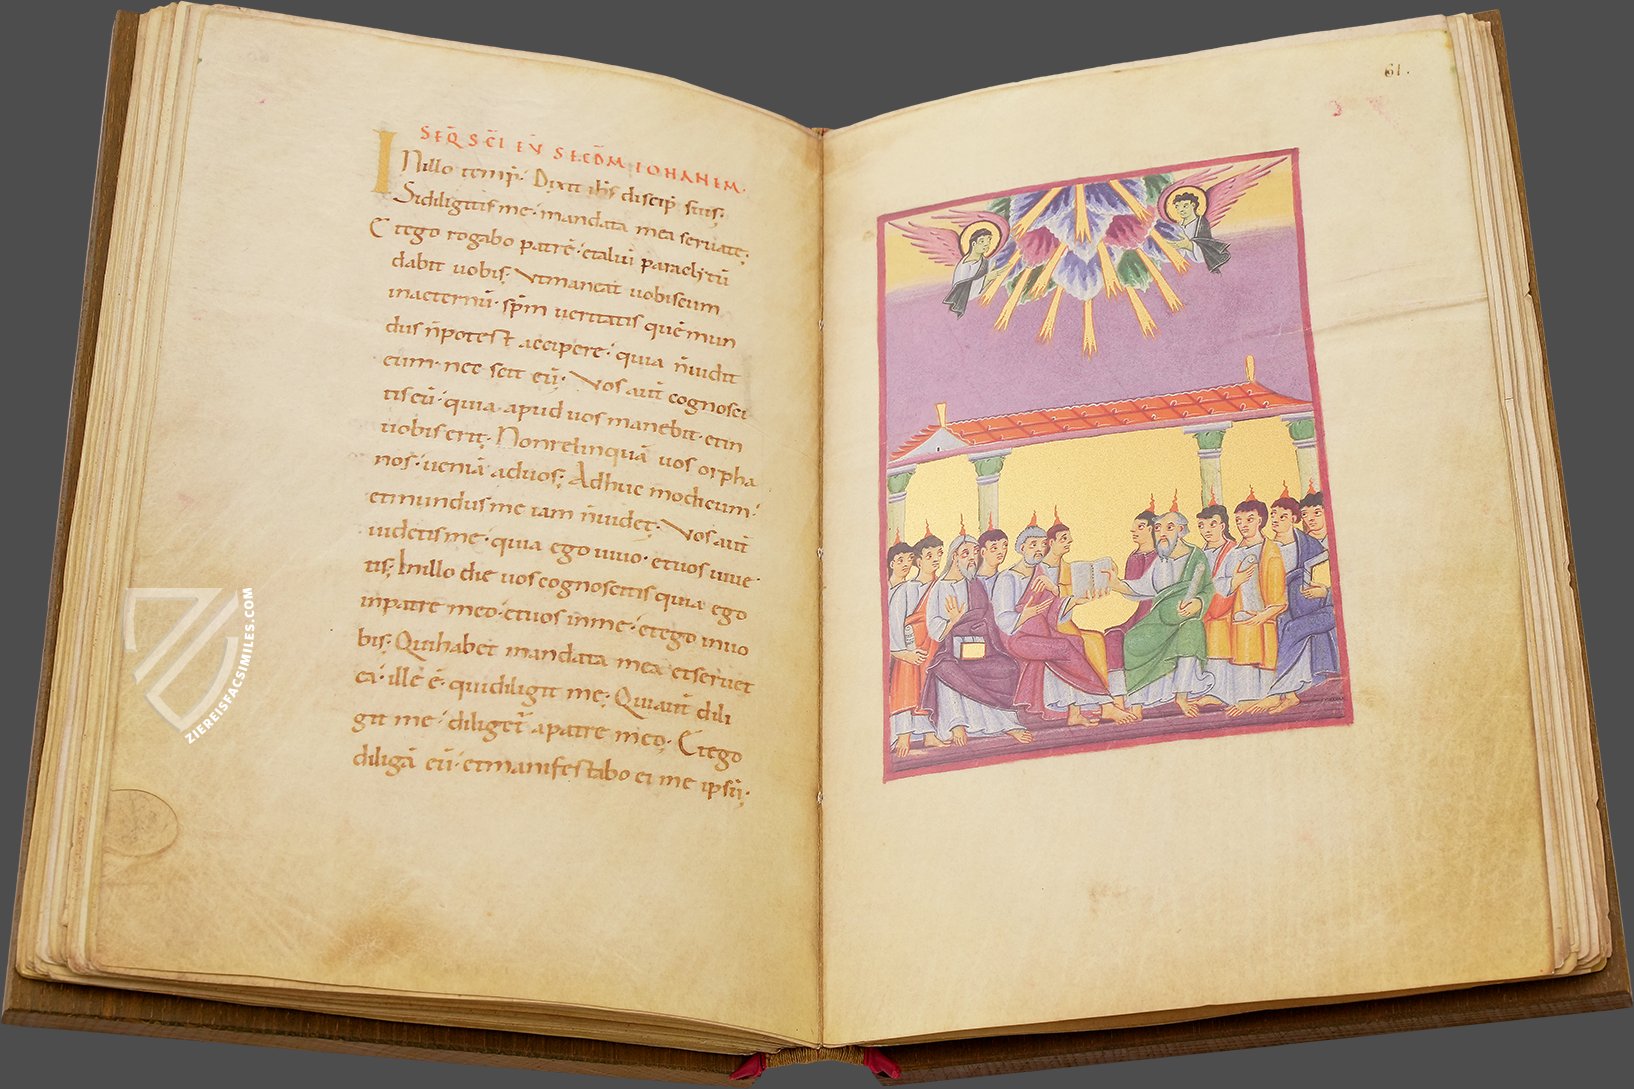 SEQ̄ SC̄I EV̄ SECDM̄ IOHANEM·
INillo temp̄· Dixit ih̄s discip̄ suis;
Sidiligitis me· mandata mea seruate;
Et ego rogabo patrē· etaliū paraclitū
dabit uobis; Vtmaneat uobiscum
inaeternū· sp̄m ueritatis quēmun
dus n̄potest accipere· quia n̄uidit
eum· nec scit eū; Vos aut̄ cognosci
tis eū· quia apud uos manebit· etin
uobis erit; Nonrelinquā uos orpha
nos· ueniā aduos; Adhuc modicum·
etmundus me iam n̄uidet; Vos aut̄
uidetis me· quia ego uiuo· etuos uiue
tis; Inillo die uos cognoscetis quia ego
inpatre meo· etuos inme· etego inuo
bis; Quihabet mandata mea etseruat
ea· illē ē· quidiligit me; Quiaut̄ dili
git me· diliget̄ apatre meo; Etego
diligā eū· etmanifestabo ei me ipsū;
61.
ZIEREISFACSIMILES.COM